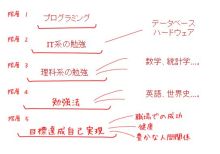 階層 1 プログラミング
データベース
ハードウェア
階層 2 IT系の勉強
階層 3 理科系の勉強
数学、統計学…。
階層 4 勉強法
英語、世界史…。
階層 5 目標達成自己実現
職場での成功
健康
豊かな人間関係